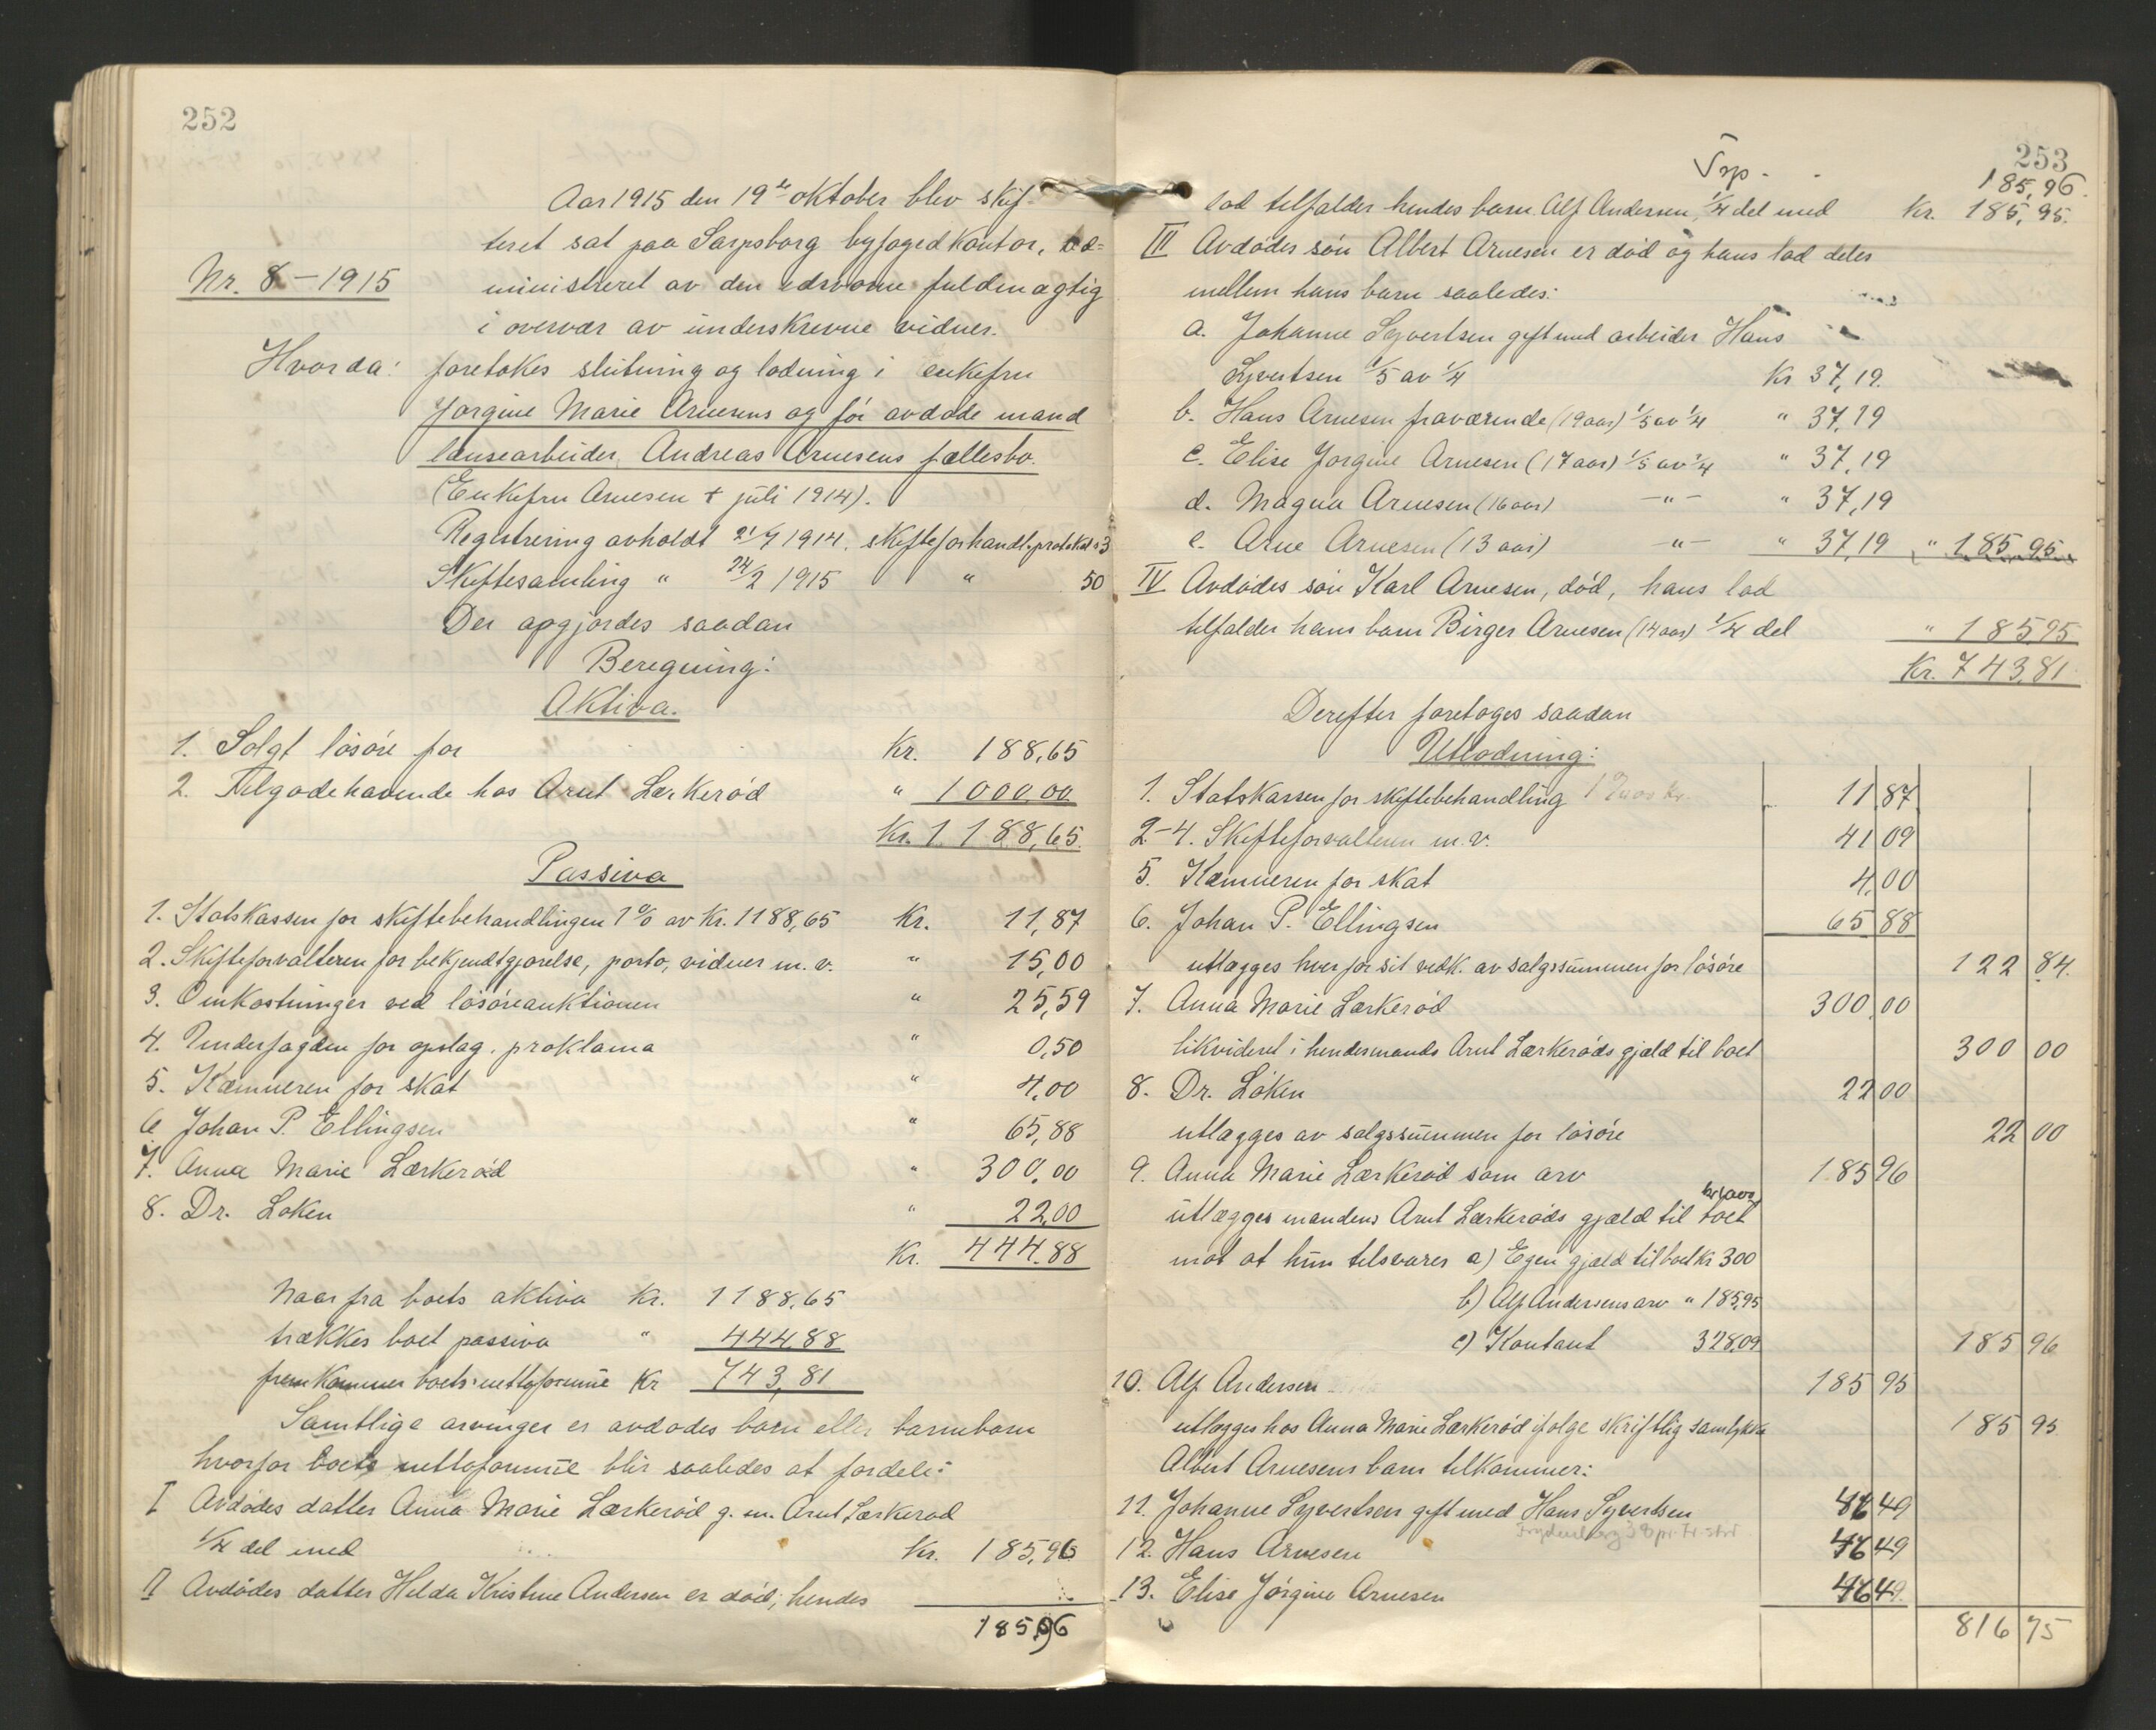 252
Aar 1915 den 19de oktober blev skif-
teret sat paa Sarpsborg byfogedkontor, ad=
Nr. 8 – 1915
ministreret av den edsvorne fuldmægtig
i overvær av underskrevne vidner.
Hvorda:
foretokes slutning og lodning i enkefru
Jørgine Marie Arnesens og før avdøde mand
lænsearbeider Andreas Arnesens fællesbo.
(Enkefru Arnesen † juli 1914).
Registrering avholdt 21/7 1914. skifteforhandl.protokol s 3
Skiftesamling " 24/2 1915 " 50
Der opgjordes saadan
Beregning:
Aktiva.
1. Solgt løsøre for Kr. 188,65
2. Tilgodehavende hos Arnt Lærkerød " 1000,00
Kr. 1188,65.
Passiva
1. Statskassen for skiftebehandlingen 1% av Kr. 1188,65 Kr. 11,87
2. Skifteforvalteren for bekjendtgjørelse, porto, vidner m. v. " 15,00
3. Omkostninger ved løsøreauktionen " 25,59
4. Underfogden for opslag. proklama " 0,50
5. Kæmneren for skat " 4,00
6 Johan P. Ellingsen " 65,88
7. Anna Marie Lærkerød " 300,00
8. Dr. Løken " 22,00
Kr. 444.88
Naar fra boets aktiva Kr. 1188,65
trækkes boet passiva " 444,88
fremkommer boets nettoformue Kr 743,81
Samtlige arvinger er avdødes barn eller barnebarn
hvorfor boets nettoformue blir saaledes at fordele:
I Avdødes datter Anna Marie Lærkerød g. m. Arnt Lærkerød
1/4 del med Kr. 185,96
II Avdødes datter Hilda Kristine Andersen er død; hendes
185,96
253
Trsp. 185,96.
lod tilfalder hendes barn Alf Andersen, 1/4 del med Kr. 185,95.
III Avdødes søn Albert Arnesen er død og hans lod deles
mellem hans barn saaledes:
a. Johanne Syvertsen gift med arbeider Hans
Syvertsen 1/5 av 1/4 Kr 37,19.
b. Hans Arnesen fraværende (19 aar) 1/5 av 1/4 " 37,19
c. Elise Jørgine Arnesen (17 aar) 1/5 av 1/4 " 37,19
d. Magna Arnesen (16 aar) –"– " 37,19
e. Arne Arnesen (13 aar) –"– " 37,19 " 185,95
IV Avdødes søn Karl Arnesen, død, hans lod
tilfalder hans barn Birger Arnesen (14 aar) 1/4 del " 185,95
Kr. 743,81
Derefter foretoges saadan
Utlodning:
1. Statskassen for skiftebehandling 11 87
2–4. Skifteforvalteren m. v. 41 09
5. Kæmneren for skat 4,00
6. Johan P. Ellingsen 65 88
utlægges hver for sit vedk. av salgssummen for løsøre 122 84.
7. Anna Marie Lærkerød 300,00
likvideret i hendes mands Arnt Lærkerøds gjæld til boet 300 00
8. Dr. Løken 22 00
utlægges av salgssummen for løsøre 22 00
9. Anna Marie Lærkerød som arv 185 96
utlægges mandens Arnt Lærkerøds gjæld til boet kr 1000
mot at hun tilsvarer a) Egen gjæld til boet kr 300
b) Alf Andersens arv " 185,95
c) Kontant 328,09 185 96
10. Alf Andersen 185 95
utlægges hos Anna Marie Lærkerød ifølge skriftlig samtykke 185 95
Albert Arnesens barn tilkommer:
11. Johanne Syvertsen gift med Hans Syvertsen 46 49
12. Hans Arnesen 46 49
13. Elise Jørgine Arnesen 46 49.
816 75